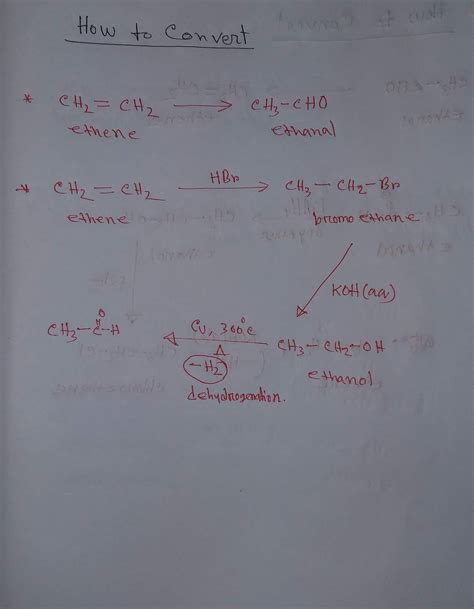 How to Convert
* CH2 = CH2 → CH3-CHO
ethene ethanal
* CH2 = CH2 HBr → CH3 - CH2-Br
ethene bromo ethane
KOH(aq)
CH3-C-H O Cu, 300°C CH3 - CH2-OH
Δ -H2 ethanol
dehydrogenation.